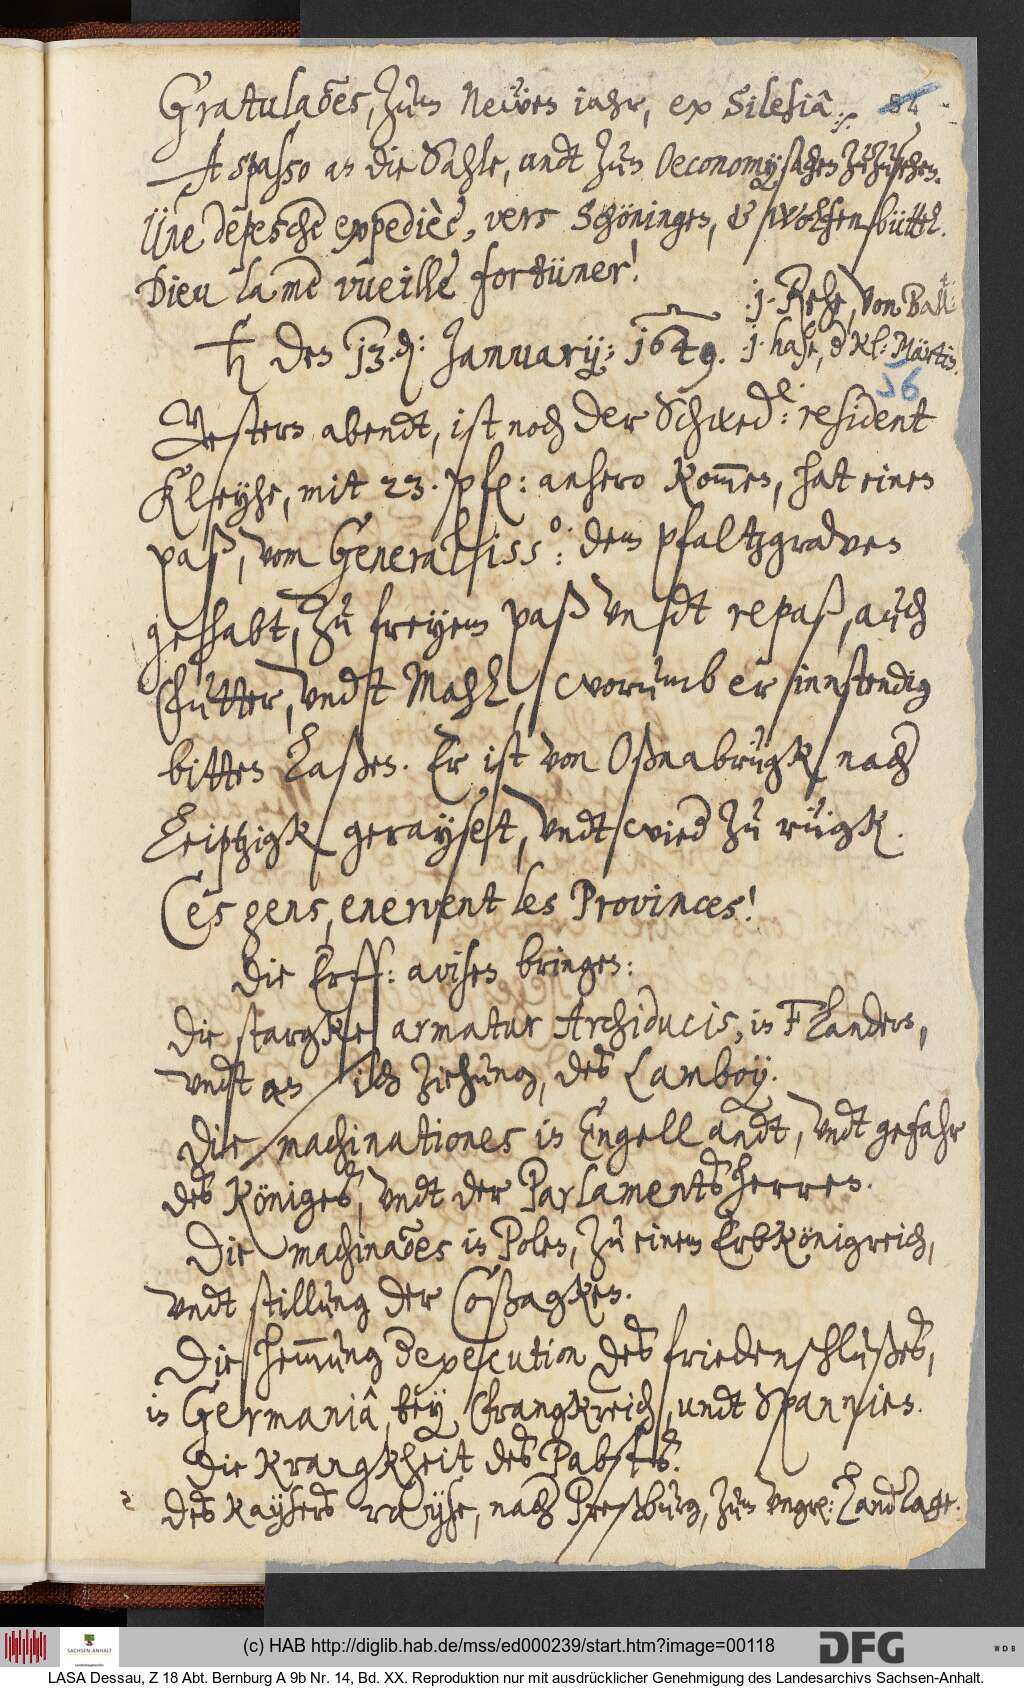 Gratula͠oes, zum Neuẅen iahr, ex Silesiâ. 54
A spasso an die Sahle, undt zun Oeconomysachen zuzusehen.
Üne depesche expedièe, vers Schöningen, & Wolfenbüttel.
Dieu la me vueille fortüner!
.j. Rehe, von Ball:
♄ den 13.den: Januarij: 1649. .j. hase, d Kl: Märtin.
56
Gestern abendt, ist noch der Schwede: resident
Kleyhe, mit 23. pfe: anhero kom̅en, hat einen
paß, vom Generalissо: dem pfaltzgraven
gehabt, zu freyem paß undt repaß, auch
Futter, undt Mahl, worumb er innstendig
bitten laßen. Er ist von Oßnabrügk nach
Leiptzigk gerayset, undt wied zu rügk.
Ces gens, enervent les Provinces!
Die Erff: avisen bringen:
Die stargke armatur Archiducis, in Flandern,
undt an sich ziehung, des Lamboy.
Die machinationes in Engellandt, undt gefahr
des Königes, undt der Parlaments herren.
Die machina͠oes in Polen, zu einem ErbKönigreich,
undt stillung der Coßagken.
Die hem̅ung d'execution des friedenschlußes,
in Germaniâ, bey Frangkreich, undt Spannien.
Die Krangkheit des Pabsts.
des Kaysers rayse, nach Preßburg, zum Ungr: Landtage.
(c) HAB http://diglib.hab.de/mss/ed000239/start.htm?image=00118
SACHSEN-ANHALT
DFG
WDB
LASA Dessau, Z 18 Abt. Bernburg A 9b Nr. 14, Bd. XX. Reproduktion nur mit ausdrücklicher Genehmigung des Landesarchivs Sachsen-Anhalt.